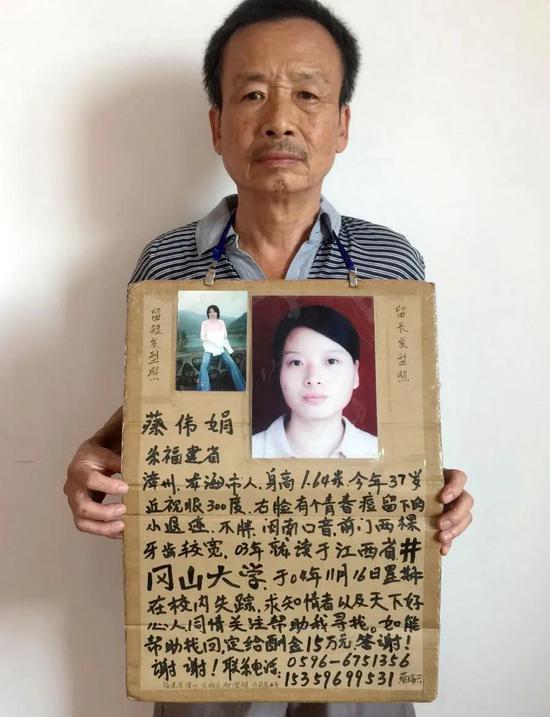 留短发型照
留长发型照
蔡伟娟
福建省
漳州.龙海市人.身高1.64米.今年37岁
近视眼300度.右脸有个青春痘留下的
小退迹.不胖.闽南口音.前门两棵
牙齿较宽.03年就读于江西省井
冈山大学.于04年11月16日
在校内失踪.求知情者以及天下好
心人同情关注帮助我寻找.如能
帮助找回定给酬金15万元.答谢!
谢谢!联系电话:0596-6751356
15359699531